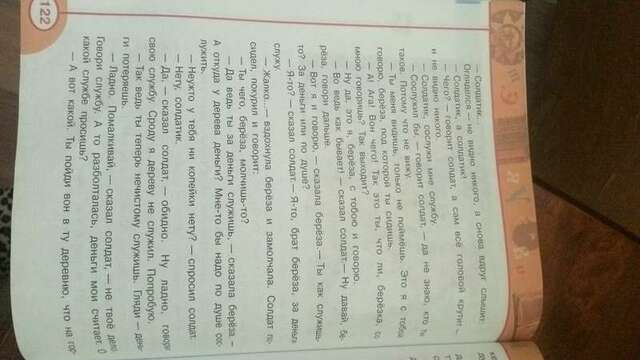 — Солдатик...
Огляделся — не видно никого, а снова вдруг слышит:
— Солдатик, а солдатик!
— Чего? — говорит солдат, а сам всё головой крутит —
и не видно никого.
— Солдатик, сослужи мне службу.
— Сослужил бы, — говорит солдат, — да не знаю, кто ты
такой. Потому что не вижу.
— Ты меня видишь, только не поймёшь. Это я с тобой
говорю, берёза, под которой ты сидишь.
— А! Ага! Вон чего! Так это ты, что ли, берёзка, со
мною говоришь? Так выходит?
— Ну да. Это я, берёза, с тобою и говорю.
— Во ведь как бывает! — сказал солдат. — Ну давай, бе-
рёза, говори дальше.
— Вот я и говорю, — сказала берёза. — Ты как служишь-
то? За деньги или по душе?
— Я-то? — сказал солдат. — Я-то, брат берёза, за деньги
служу.
— Жалко, — вздохнула берёза и замолчала. Солдат по-
сидел, покурил и говорит:
— Ты чего, берёза, молчишь-то?
— Да ведь ты за деньги служишь, — сказала берёза. —
А откуда у дерева деньги? Мне-то бы надо по душе
лужить.
— Неужто у тебя ни копейки нету? — спросил солдат.
— Нету, солдатик.
— Да, — сказал солдат, — обидно. Ну ладно, говори
свою службу. Сроду я дереву не служил. Попробую.
— Так ведь ты теперь нечистому служишь. Гляди — день-
ги потеряешь.
— Ладно. Помалкивай, — сказал солдат, — не твоё дело.
Говори службу. А то разболталась, деньги мои считает.
какой службе просишь?
— А вот какой. Ты пойди вон в ту деревню, что на гор
122